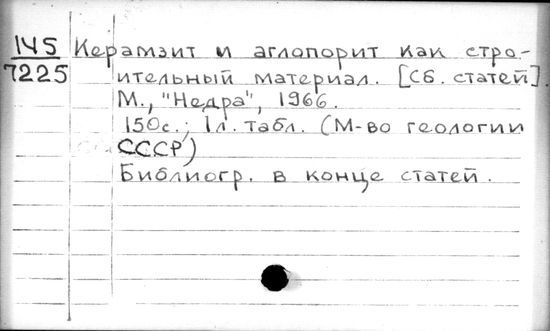 145 Керамзит и аглопорит как стро-
7225 ительный материал. [Сб. статей].
М., "Недра", 1966.
150с.; 1л. табл. (М-во геологии
СССР)
Библиогр. в конце статей.